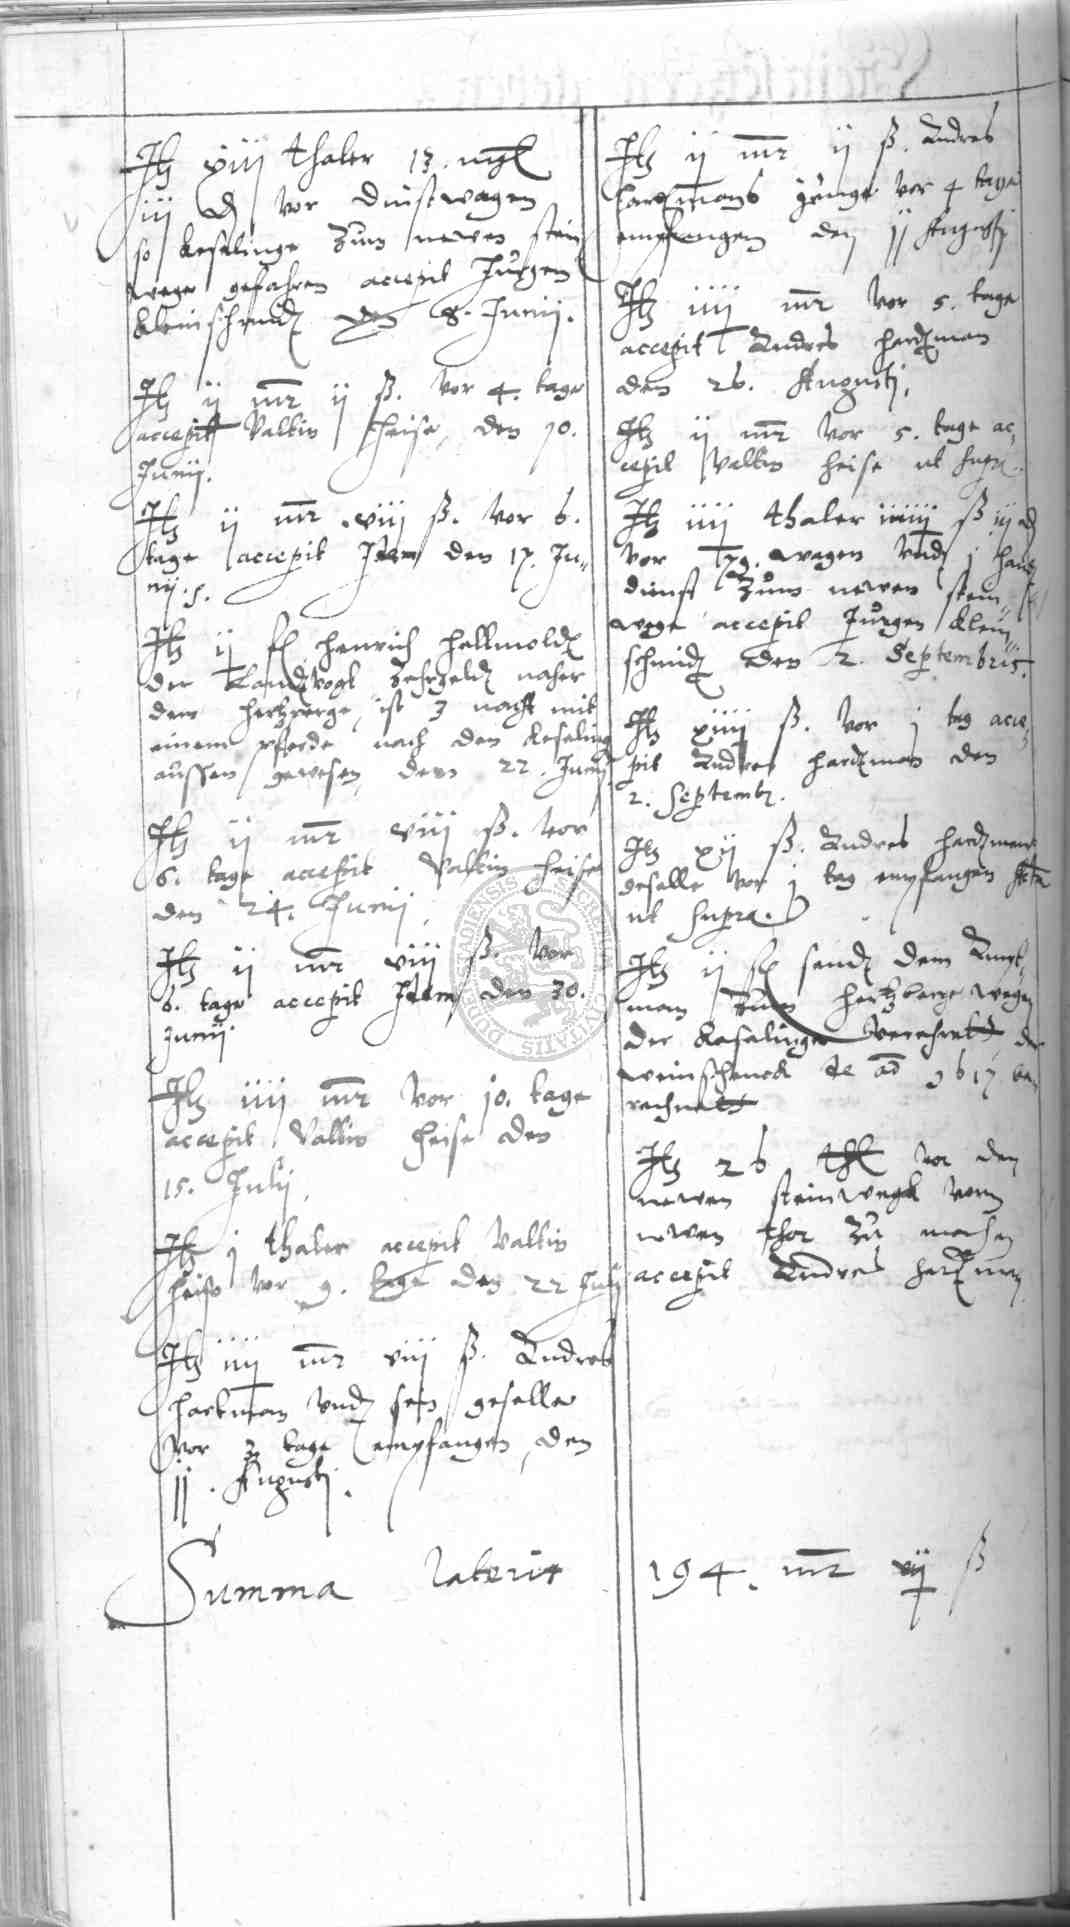 Itz xiiii thaler 13. mgl
iiij d vor dinstwagen
so keselinge zum newen stein
wege gefahren accepit Jürgen
kleinschmidt den 8. Junij.
Itz ij mr ij ß. vor 4. tage
accepit Valtin Heise, den 10.
Junij.
Itz ij mr. viij ß. vor 6.
tage accepit Idem den 17. Ju-
nij.
Itz ij fl Henrich Hellmoldt
der Landtvogt naher
dem Hertzberge, ist 3 nacht mit
einem pferde nach den keseling
aussen gewesen, den 22. Junij
Itz ij mr viij ß. vor
6. tage accepit Valtin Heise
den 24. Junij.
Itz ij mr viij ß. vor
6. tage accepit Idem den 30.
Junij
Itz iiij mr vor 10. tage
accepit Valtin Heise den
15. Julij.
Itz j thaler accepit Valtin
Heise vor 9. tage den 22 Julij
Itz iiij mr viij ß. Andres
Hartman vndt sein geselle
vor 3 tage empfangen, den
11. Augusti.
Itz ij mr ij ß. Andres
Hartmans junge vor 4 tage
empfangen den 11 Augusti
Itz iiij mr vor 5. tage
accepit Andres Hartman
den 26. Augusti.
Itz ij mr vor 5. tage ac-
cepit Valtin Heise ut supra.
Itz iiij thaler ß iij d
vor wagen vnd j handt
dinst zum newen stein
wege accepit Jürgen klein
schmidt den 2. Septembris.
Itz xiiij ß. vor j tag acce-
pit Andres Hartman den
2. Septemb.
Itz xij ß. Andres Hartmans
geselle vor j tag empfangen
ut supra.
Itz ij fl sendt dem Ampt-
man zum Hertzberge wegen
der keselinge verehret, der
weinschenck de ad 1617 be-
rechnet
Itz 26 thl vor den
newen steinwegk vorm
newen thor zu machen
accepit Andres Hartman
Summa lateris 194. mr vij ß